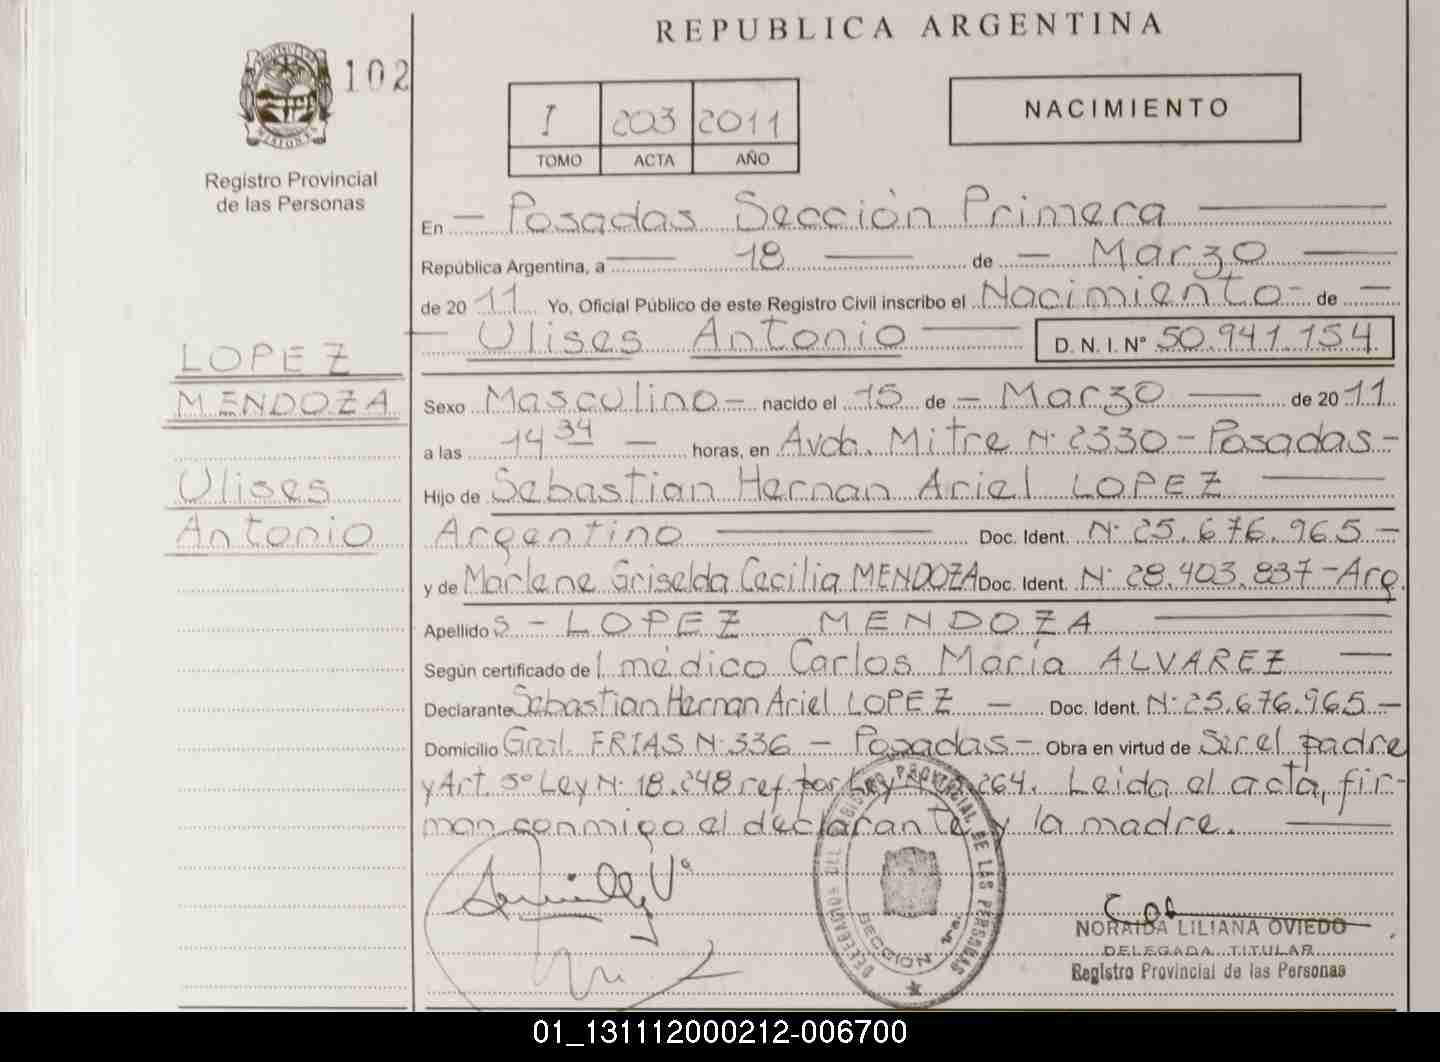 REPUBLICA ARGENTINA
102
I 203 2011
TOMO ACTA AÑO
NACIMIENTO
Registro Provincial
de las Personas
En — Posadas Sección Primera —
República Argentina, a — 18 — de — Marzo —
de 2011 Yo, Oficial Público de este Registro Civil inscribo el Nacimiento - de —
— Ulises Antonio — D. N. I. Nº 50.941.154
LOPEZ
MENDOZA
Ulises
Antonio
Sexo Masculino — nacido el 15 de — Marzo — de 2011
a las 14 34 — horas, en Avda. Mitre Nº 2330 - Posadas -
Hijo de Sebastian Hernan Ariel LOPEZ —
Argentino — Doc. Ident. Nº 25.676.965 —
y de Marlene Griselda Cecilia MENDOZA Doc. Ident. Nº 28.403.837 - Arg.
Apellidos - LOPEZ MENDOZA —
Según certificado del médico Carlos María ALVAREZ —
Declarante Sebastian Hernan Ariel LOPEZ — Doc. Ident. Nº 25.676.965 —
Domicilio Gral. FRIAS Nº 336 - Posadas - Obra en virtud de Ser el padre
y Art. 5º Ley Nº 18.248 ref. por Ley 264. Leida el acta, fir-
man conmigo el declarante y la madre. —
DELEGACION DEL REGISTRO PROVINCIAL DE LAS PERSONAS
SECCIÓN 1ra.
NORAIDA LILIANA OVIEDO
DELEGADA TITULAR
Registro Provincial de las Personas
01_131112000212-006700